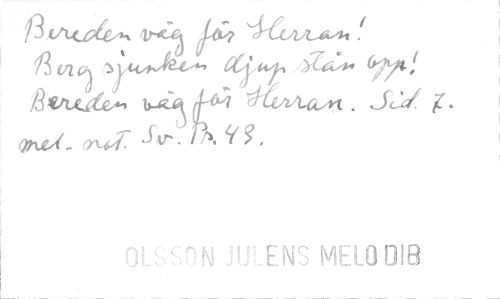 Bereden väg för Herran!
Berg sjunken djup stån opp!
Bereden väg för Herran. Sid. 7.
mel. not. Sv. Ps. 43.
OLSSON JULENS MELODIB